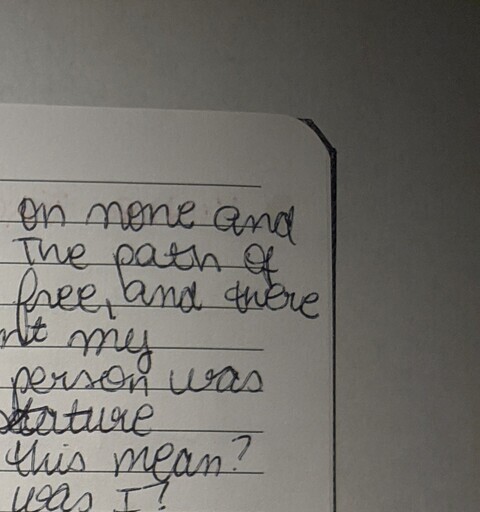 on none and
The path of
free, and there
my
person was
stature
this mean?
was I?